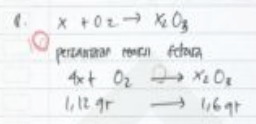 8. X + O2 → X2O3
persamaan reaksi setara
4X + O2 → X2O3
1,12 gr → 1,6 gr